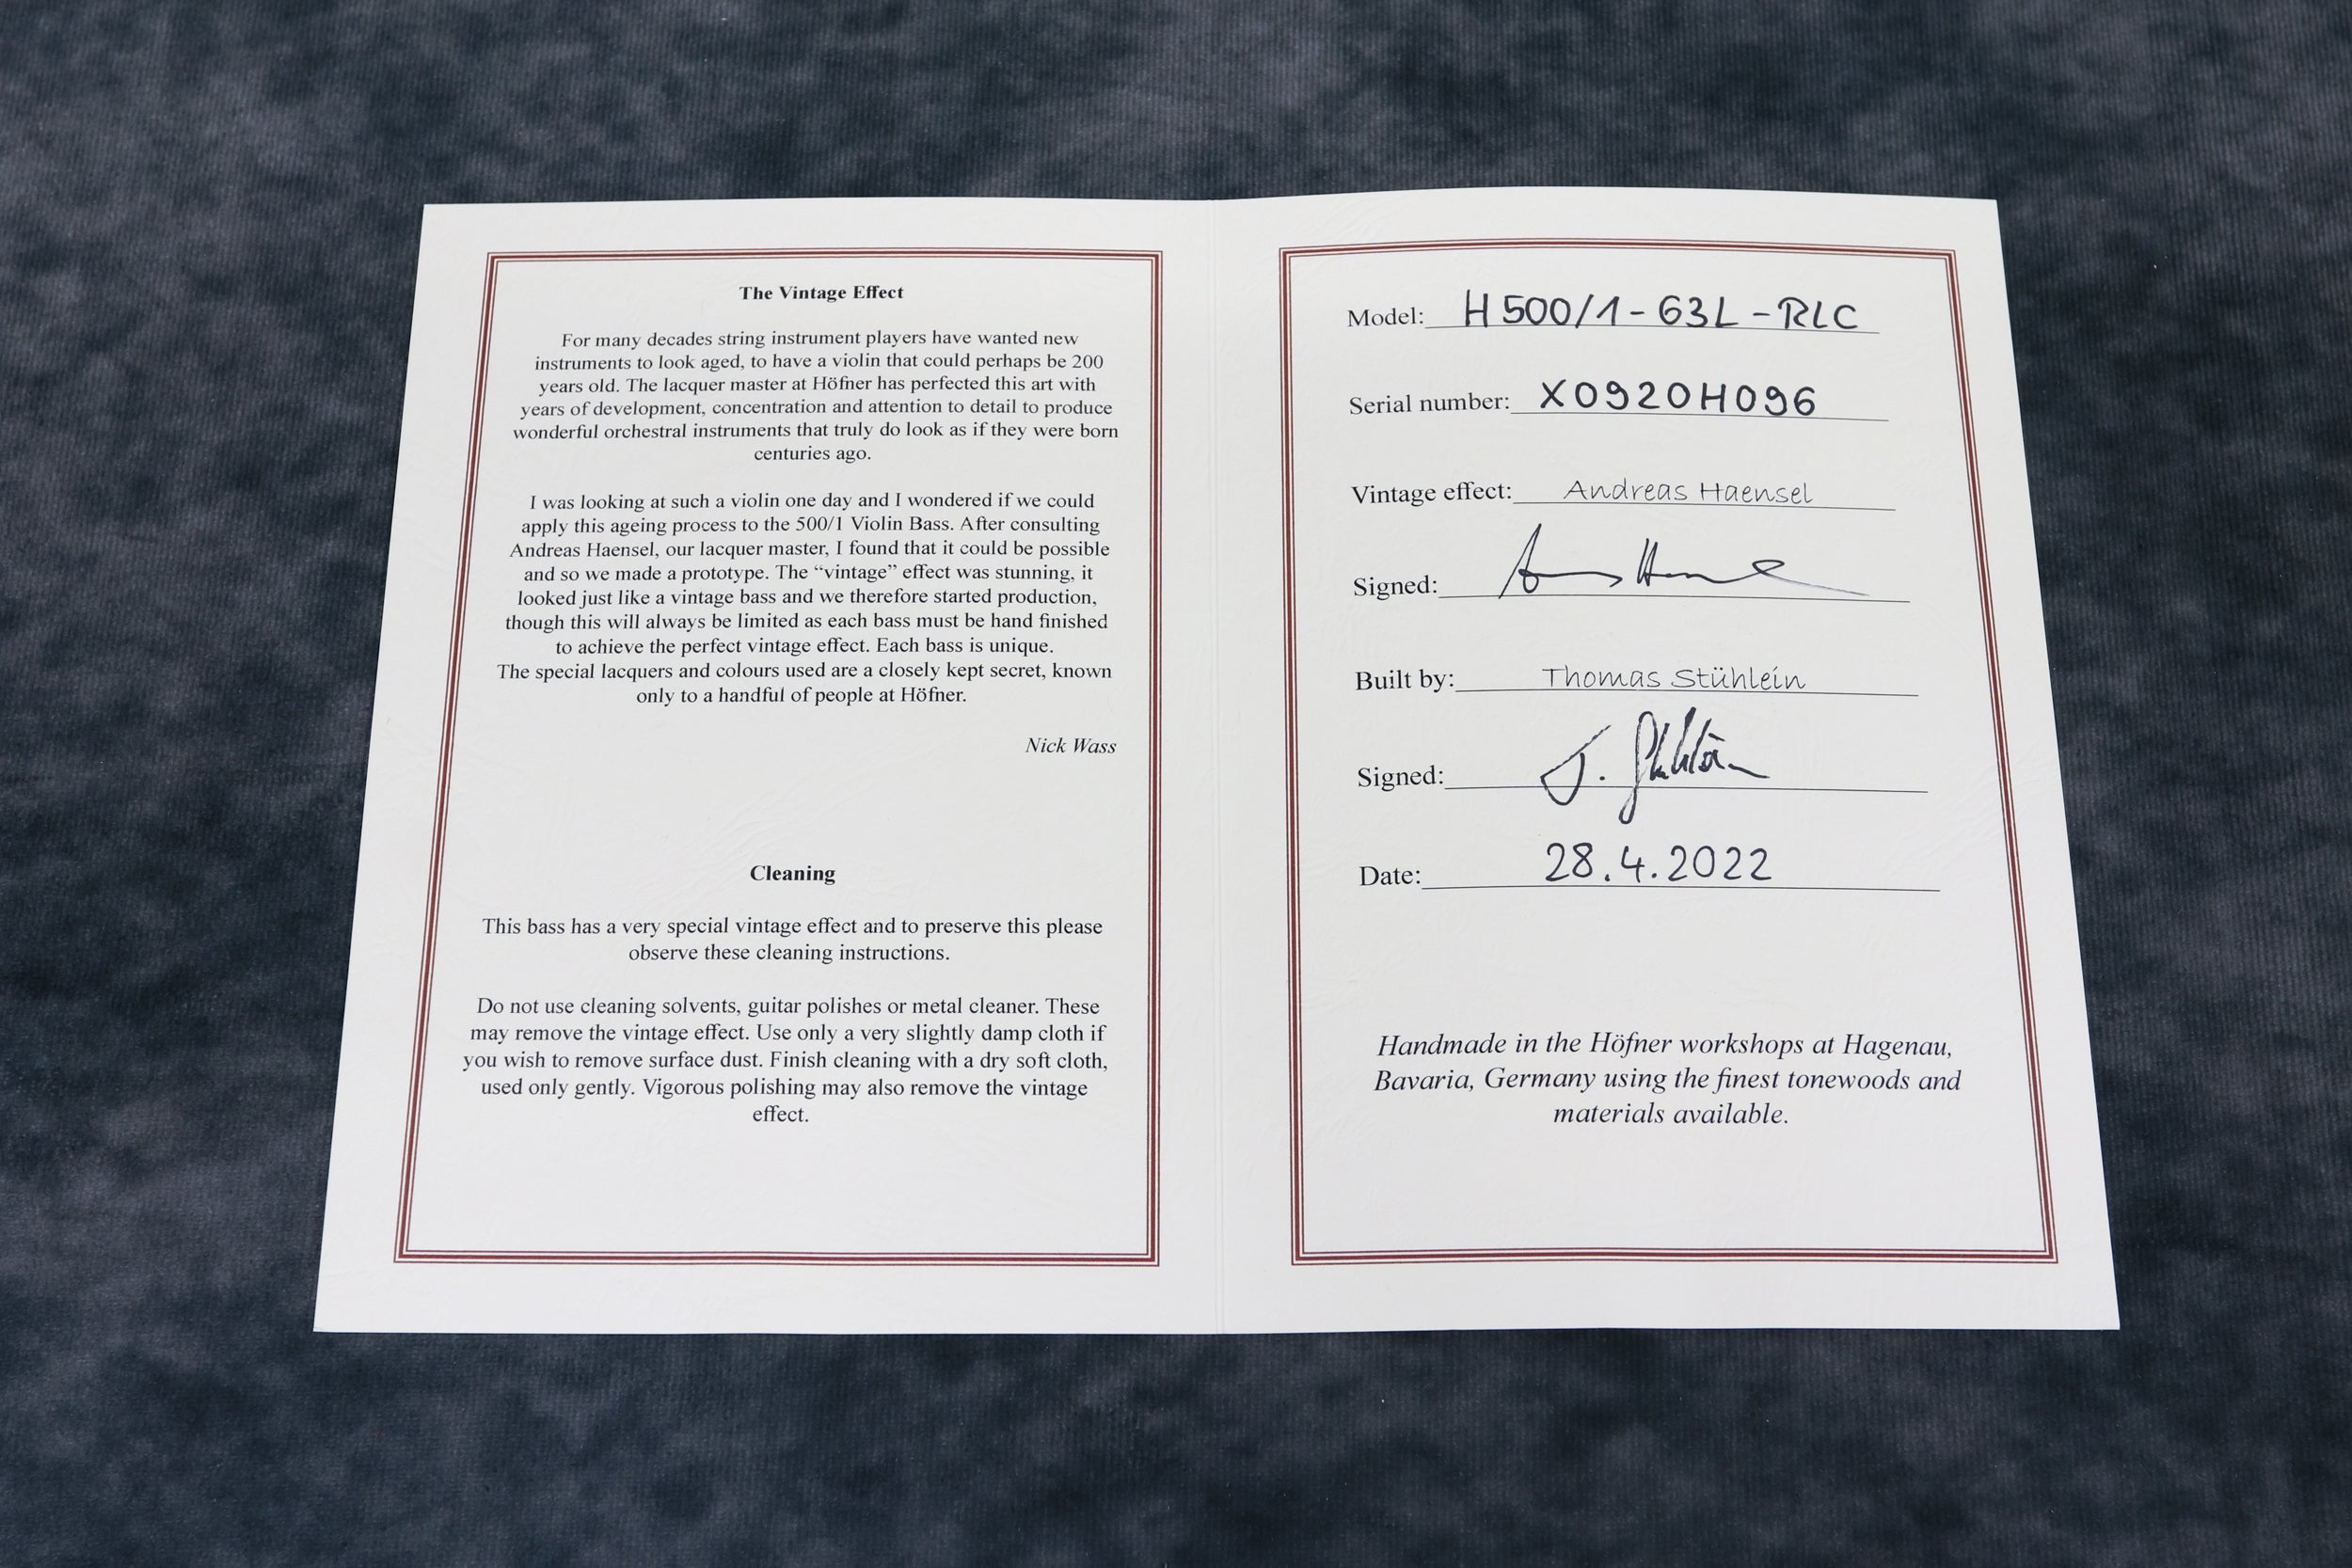 The Vintage Effect
For many decades string instrument players have wanted new
instruments to look aged, to have a violin that could perhaps be 200
years old. The lacquer master at Höfner has perfected this art with
years of development, concentration and attention to detail to produce
wonderful orchestral instruments that truly do look as if they were born
centuries ago.
I was looking at such a violin one day and I wondered if we could
apply this ageing process to the 500/1 Violin Bass. After consulting
Andreas Haensel, our lacquer master, I found that it could be possible
and so we made a prototype. The “vintage” effect was stunning, it
looked just like a vintage bass and we therefore started production,
though this will always be limited as each bass must be hand finished
to achieve the perfect vintage effect. Each bass is unique.
The special lacquers and colours used are a closely kept secret, known
only to a handful of people at Höfner.
Nick Wass
Cleaning
This bass has a very special vintage effect and to preserve this please
observe these cleaning instructions.
Do not use cleaning solvents, guitar polishes or metal cleaner. These
may remove the vintage effect. Use only a very slightly damp cloth if
you wish to remove surface dust. Finish cleaning with a dry soft cloth,
used only gently. Vigorous polishing may also remove the vintage
effect.
Model: H500/1-63L-RLC
Serial number: X0920H096
Vintage effect: Andreas Haensel
Signed:
Built by: Thomas Stühlein
Signed: T. Stühlein
Date: 28.4.2022
Handmade in the Höfner workshops at Hagenau,
Bavaria, Germany using the finest tonewoods and
materials available.